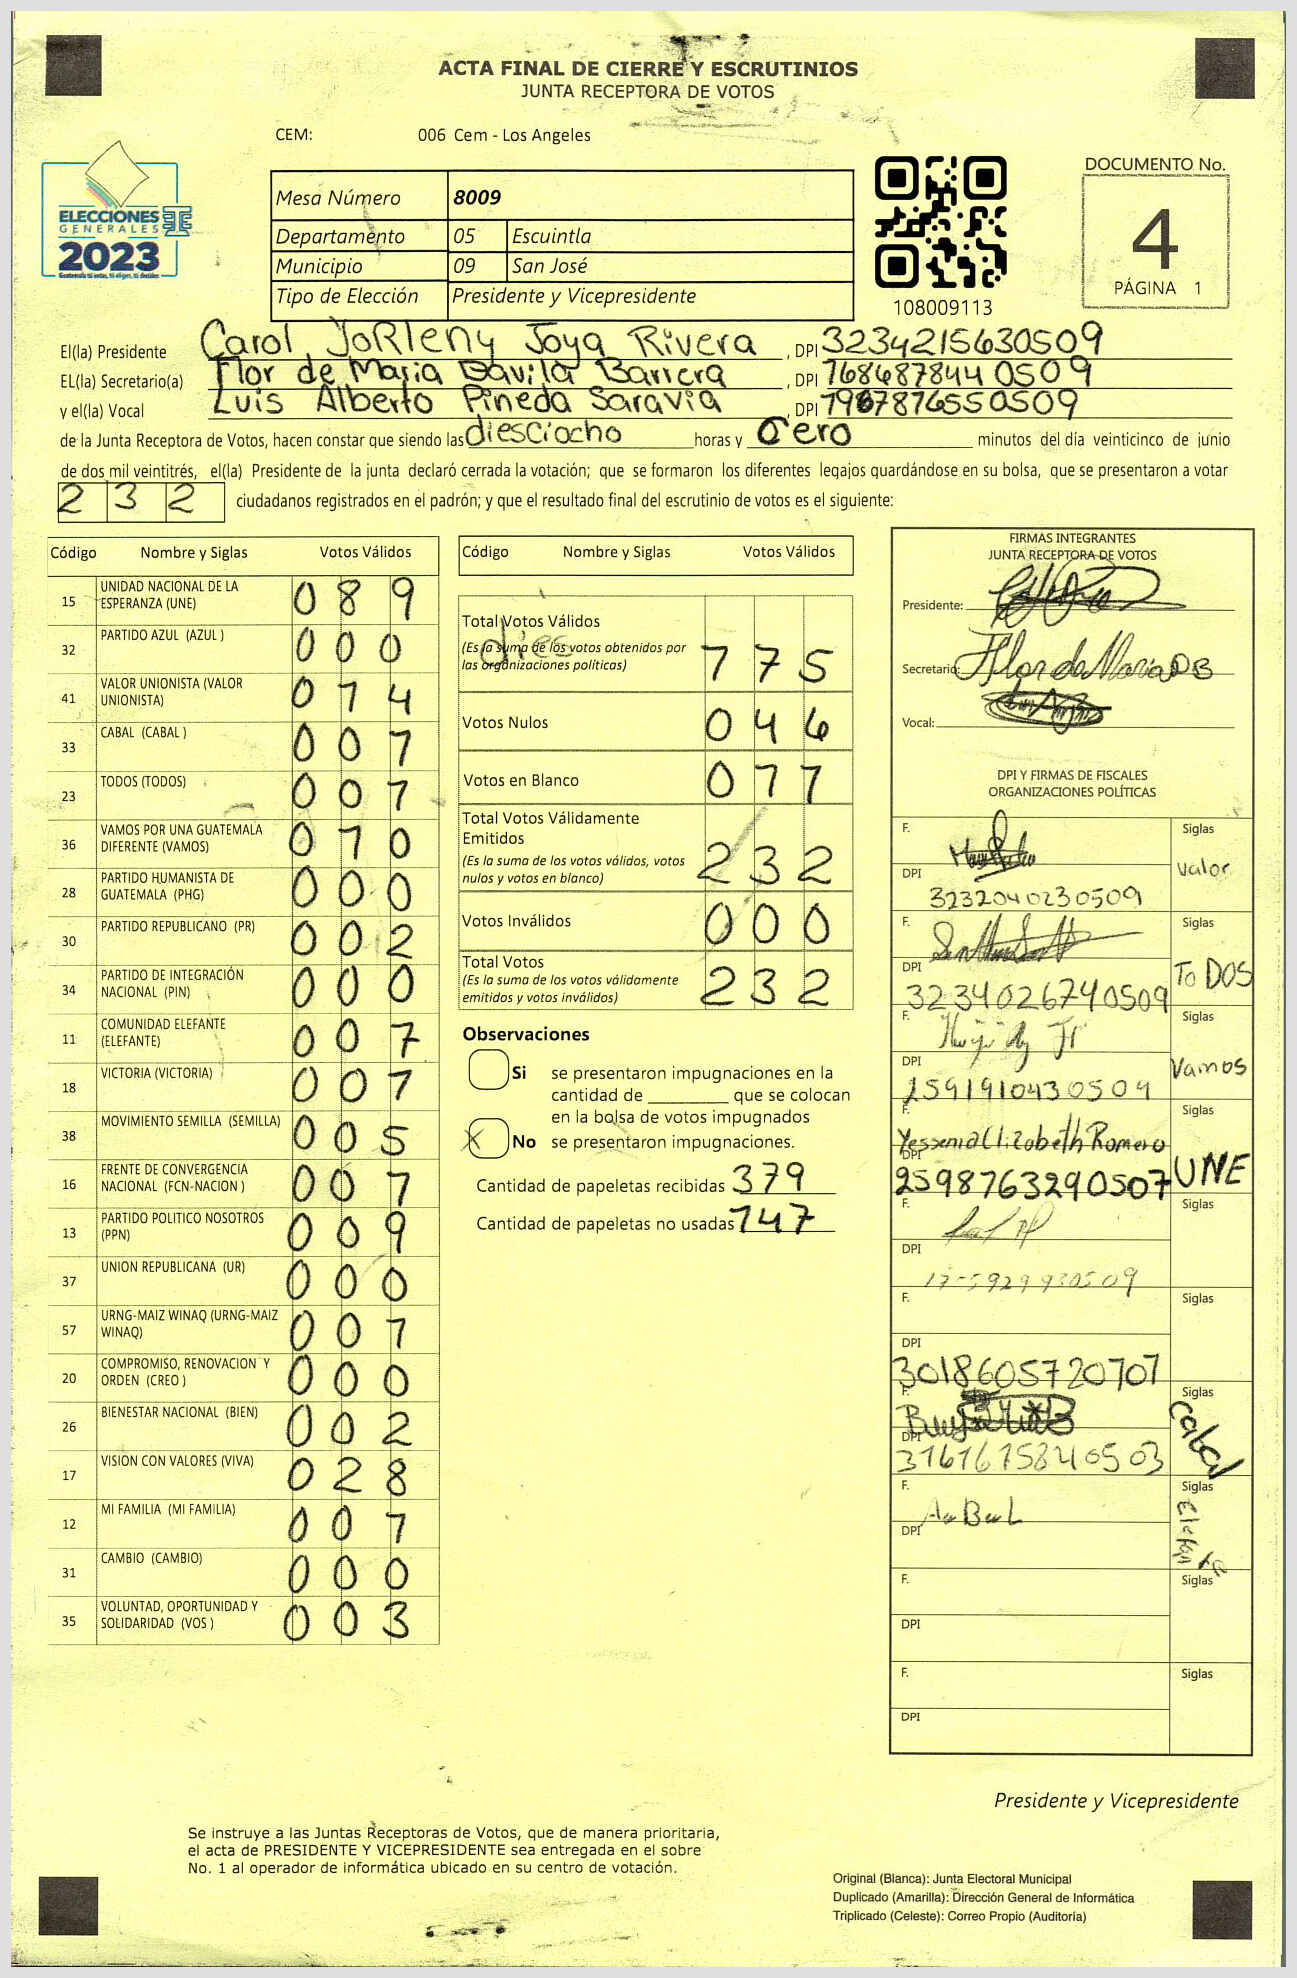 ACTA FINAL DE CIERRE Y ESCRUTINIOS
JUNTA RECEPTORA DE VOTOS
CEM: 006 Cem - Los Angeles
ELECCIONES
GENERALES
2023
Guatemala tú votas, tú eliges, tú decides
Mesa Número 8009
Departamento 05 Escuintla
Municipio 09 San José
Tipo de Elección Presidente y Vicepresidente
108009113
DOCUMENTO No.
4
PÁGINA 1
El(la) Presidente Carol Yorleny Joya Rivera, DPI 3234215630509
EL(la) Secretario(a) Flor de Maria Davila Barrera, DPI 1686878440509
y el(la) Vocal Luis Alberto Pineda Saravia, DPI
de la Junta Receptora de Votos, hacen constar que siendo las diesciocho horas y Cero minutos del día veinticinco de junio
de dos mil veintitrés, el(la) Presidente de la junta declaró cerrada la votación; que se formaron los diferentes legajos quardándose en su bolsa, que se presentaron a votar
232 ciudadanos registrados en el padrón; y que el resultado final del escrutinio de votos es el siguiente:
Código Nombre y Siglas Votos Válidos
15 UNIDAD NACIONAL DE LA ESPERANZA (UNE) 089
32 PARTIDO AZUL (AZUL ) 000
41 VALOR UNIONISTA (VALOR UNIONISTA) 014
33 CABAL (CABAL ) 001
23 TODOS (TODOS) 001
36 VAMOS POR UNA GUATEMALA DIFERENTE (VAMOS) 010
28 PARTIDO HUMANISTA DE GUATEMALA (PHG) 000
30 PARTIDO REPUBLICANO (PR) 002
34 PARTIDO DE INTEGRACIÓN NACIONAL (PIN) 000
11 COMUNIDAD ELEFANTE (ELEFANTE) 007
18 VICTORIA (VICTORIA) 001
38 MOVIMIENTO SEMILLA (SEMILLA) 005
16 FRENTE DE CONVERGENCIA NACIONAL (FCN-NACION ) 001
13 PARTIDO POLITICO NOSOTROS (PPN) 009
37 UNION REPUBLICANA (UR) 000
57 URNG-MAIZ WINAQ (URNG-MAIZ WINAQ) 001
20 COMPROMISO, RENOVACION Y ORDEN (CREO ) 000
26 BIENESTAR NACIONAL (BIEN) 002
17 VISION CON VALORES (VIVA) 028
12 MI FAMILIA (MI FAMILIA) 001
31 CAMBIO (CAMBIO) 000
35 VOLUNTAD, OPORTUNIDAD Y SOLIDARIDAD (VOS ) 003
Código Nombre y Siglas Votos Válidos
Total Votos Válidos 175
dies
(Es la suma de los votos obtenidos por
las organizaciones políticas)
Votos Nulos 046
Votos en Blanco 011
Total Votos Válidamente
Emitidos 232
(Es la suma de los votos válidos, votos
nulos y votos en blanco)
Votos Inválidos 000
Total Votos 232
(Es la suma de los votos válidamente
emitidos y votos inválidos)
Observaciones
Si se presentaron impugnaciones en la
cantidad de ________ que se colocan
en la bolsa de votos impugnados
X No se presentaron impugnaciones.
Cantidad de papeletas recibidas 379
Cantidad de papeletas no usadas 147
FIRMAS INTEGRANTES
JUNTA RECEPTORA DE VOTOS
Presidente:
Secretario: Flor de Maria DB
Vocal:
DPI Y FIRMAS DE FISCALES
ORGANIZACIONES POLÍTICAS
F. Siglas
DPI valor
3232040230509
F. Siglas
DPI ToDOS
3234026740509
F. Siglas
DPI Vamos
2591910430509
F. Siglas
Yessenia Elizabeth Romero
DPI UNE
2598763290507
F. Siglas
DPI
F. Siglas
DPI
3018605720101
F. Siglas
DPI cabal
3161615840503
F. Siglas
DPI Elefante
F. Siglas
DPI
F. Siglas
DPI
Presidente y Vicepresidente
Se instruye a las Juntas Receptoras de Votos, que de manera prioritaria,
el acta de PRESIDENTE Y VICEPRESIDENTE sea entregada en el sobre
No. 1 al operador de informática ubicado en su centro de votación.
Original (Blanca): Junta Electoral Municipal
Duplicado (Amarilla): Dirección General de Informática
Triplicado (Celeste): Correo Propio (Auditoría)